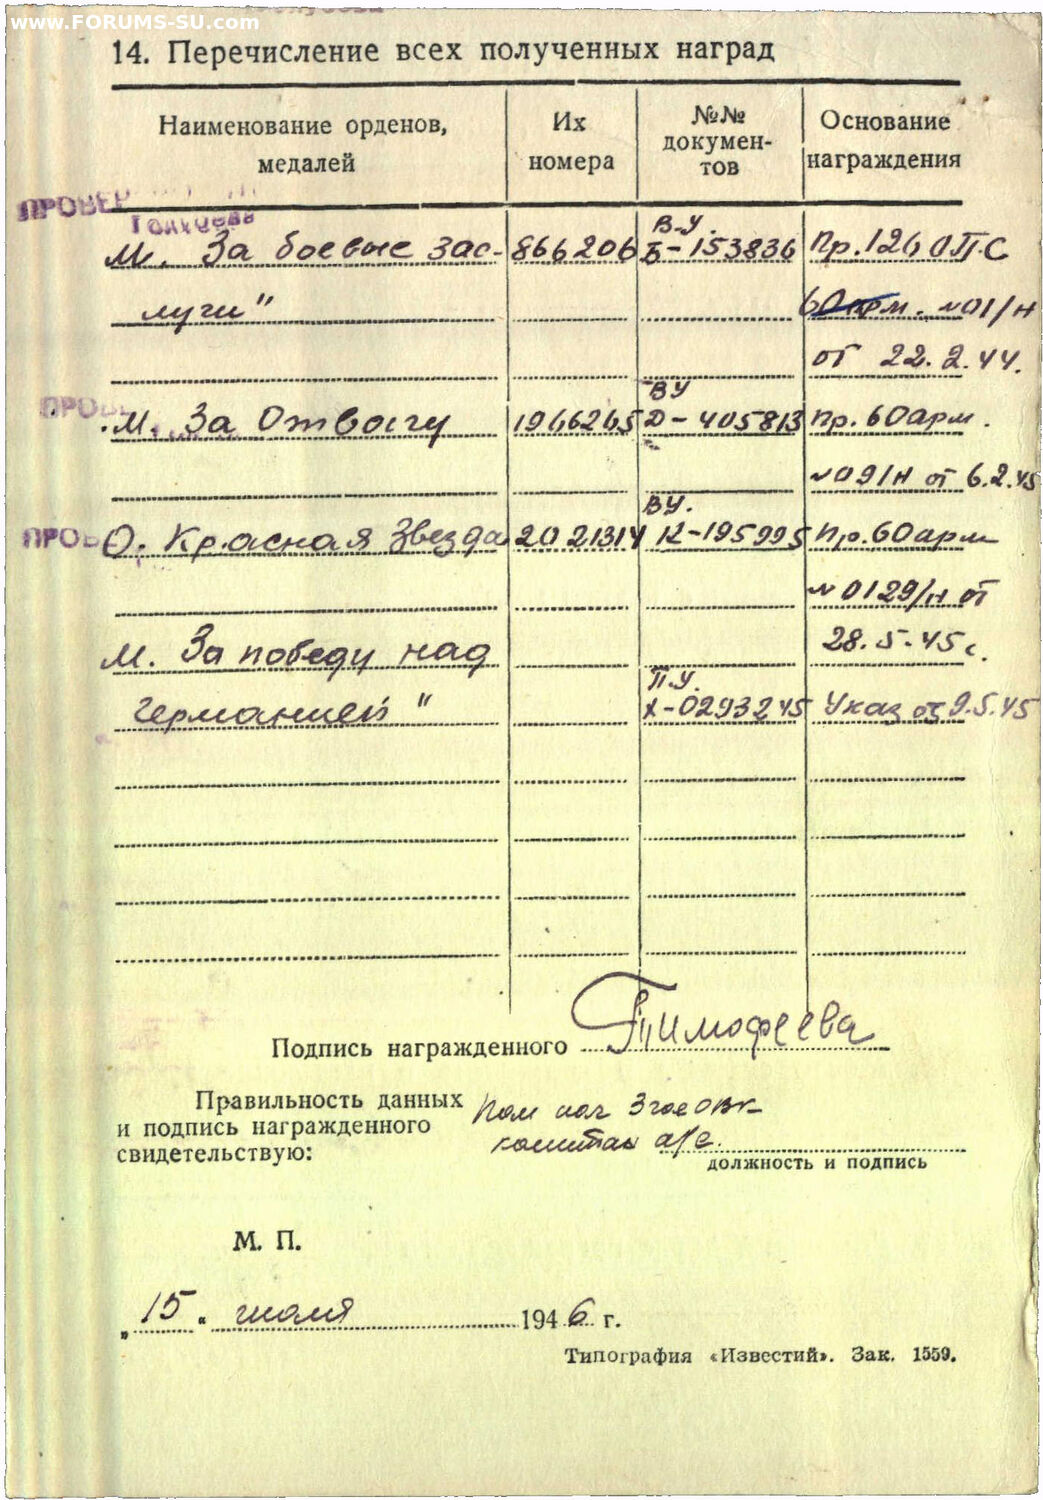 www.FORUMS-SU.com
14. Перечисление всех полученных наград
Наименование орденов, медалей
Их номера
№№ докумен-тов
Основание награждения
ПРОВЕР
М. За боевые зас- 866206 В.У. Б-153836 Пр. 126 ОПС
луги" 60 арм. №01/н
от 22.2.44.
ПРОВ
М. За Отвагу 1946245 ВУ Д-405813 Пр. 60 арм.
№09/н от 6.2.45
ПРОВ
О. Красная Звезда 2021314 ВУ. К-195995 Пр. 60 арм
№0129/н от
М. За победу над 28.5.45 г.
Германией" П.У. Х-0293245 Указ от 9.5.45
Подпись награжденного Тимофеева
Правильность данных
и подпись награжденного
свидетельствую:
Пом нач 3
капитан а/с
должность и подпись
М. П.
„15" июля 1946 г.
Типография «Известий». Зак. 1559.